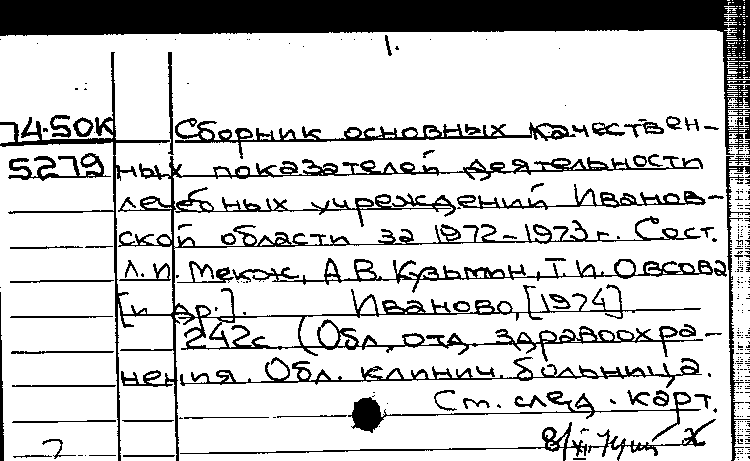 1.
74-50К Сборник основных качествен-
5279 ных показателей деятельности
лечебных учреждений Иванов-
ской области за 1972-1973 г. Сост.
Л.П. Мекож, А.В. Кузьмин, Т.П. Овсова
[и др.]. Иваново, [1974].
242с. (Обл. отд. здравоохра-
нения. Обл. клинич. больница.
См. след. карт.